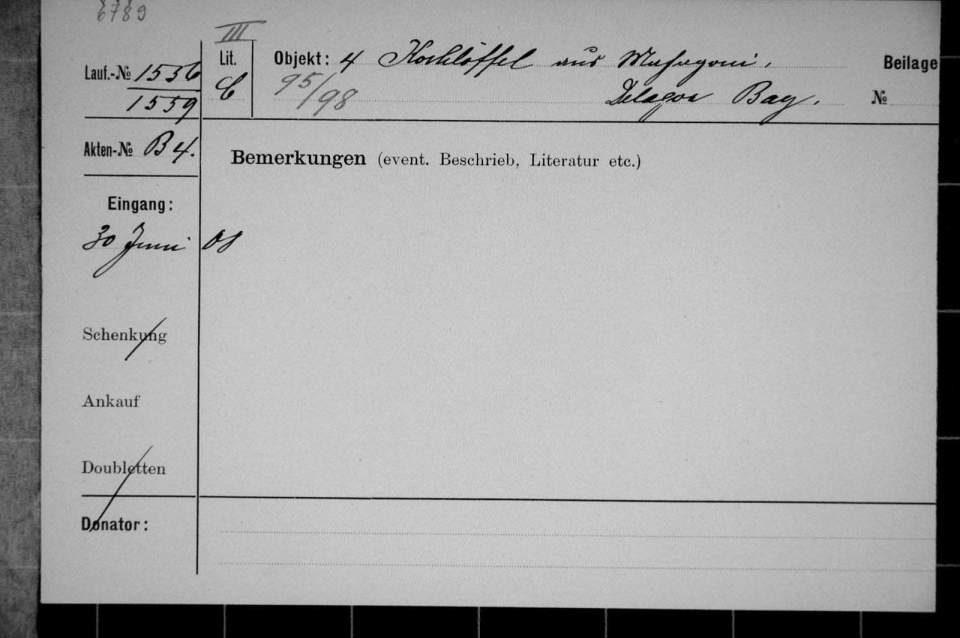 6789
III
Lauf.-№ 1556 Lit. Objekt: 4 Kochlöffel aus Mahagoni, Beilage
1559 C 95/98 Delagoa Bay. №
Akten-№ B 4.
Bemerkungen (event. Beschrieb, Literatur etc.)
Eingang:
30 Juni 08
Schenkung
Ankauf
Doubletten
Donator: